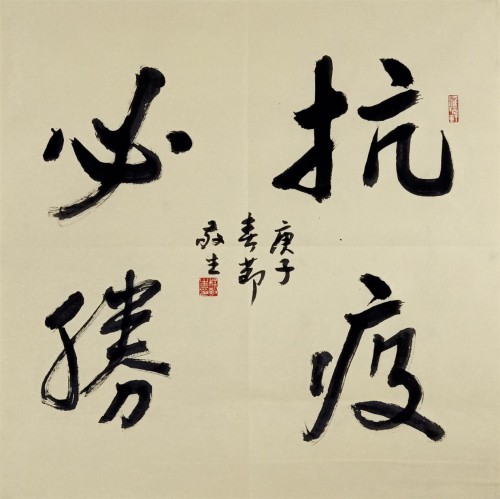 抗疫
必勝
庚子
春節
敬生